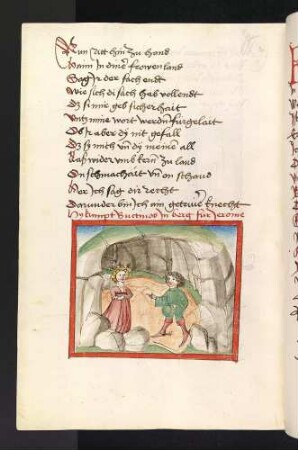 Nun ritt hin zu hond
Wann in diner frowen land
Sag ir der sach endt
Wie sich di sach hab vollendt
Dz si mir geb sicherhait
Untz mine wort werdn fürgelait
Ob ir aber dz nit gefall
Dz sy mich vnd dy meine all
Laß wider umb kern zu land
On schmachait vn on schand
Her ich sag die recht
Darunder bin ich ain getrüwer knecht
Hy kumpt in berg für